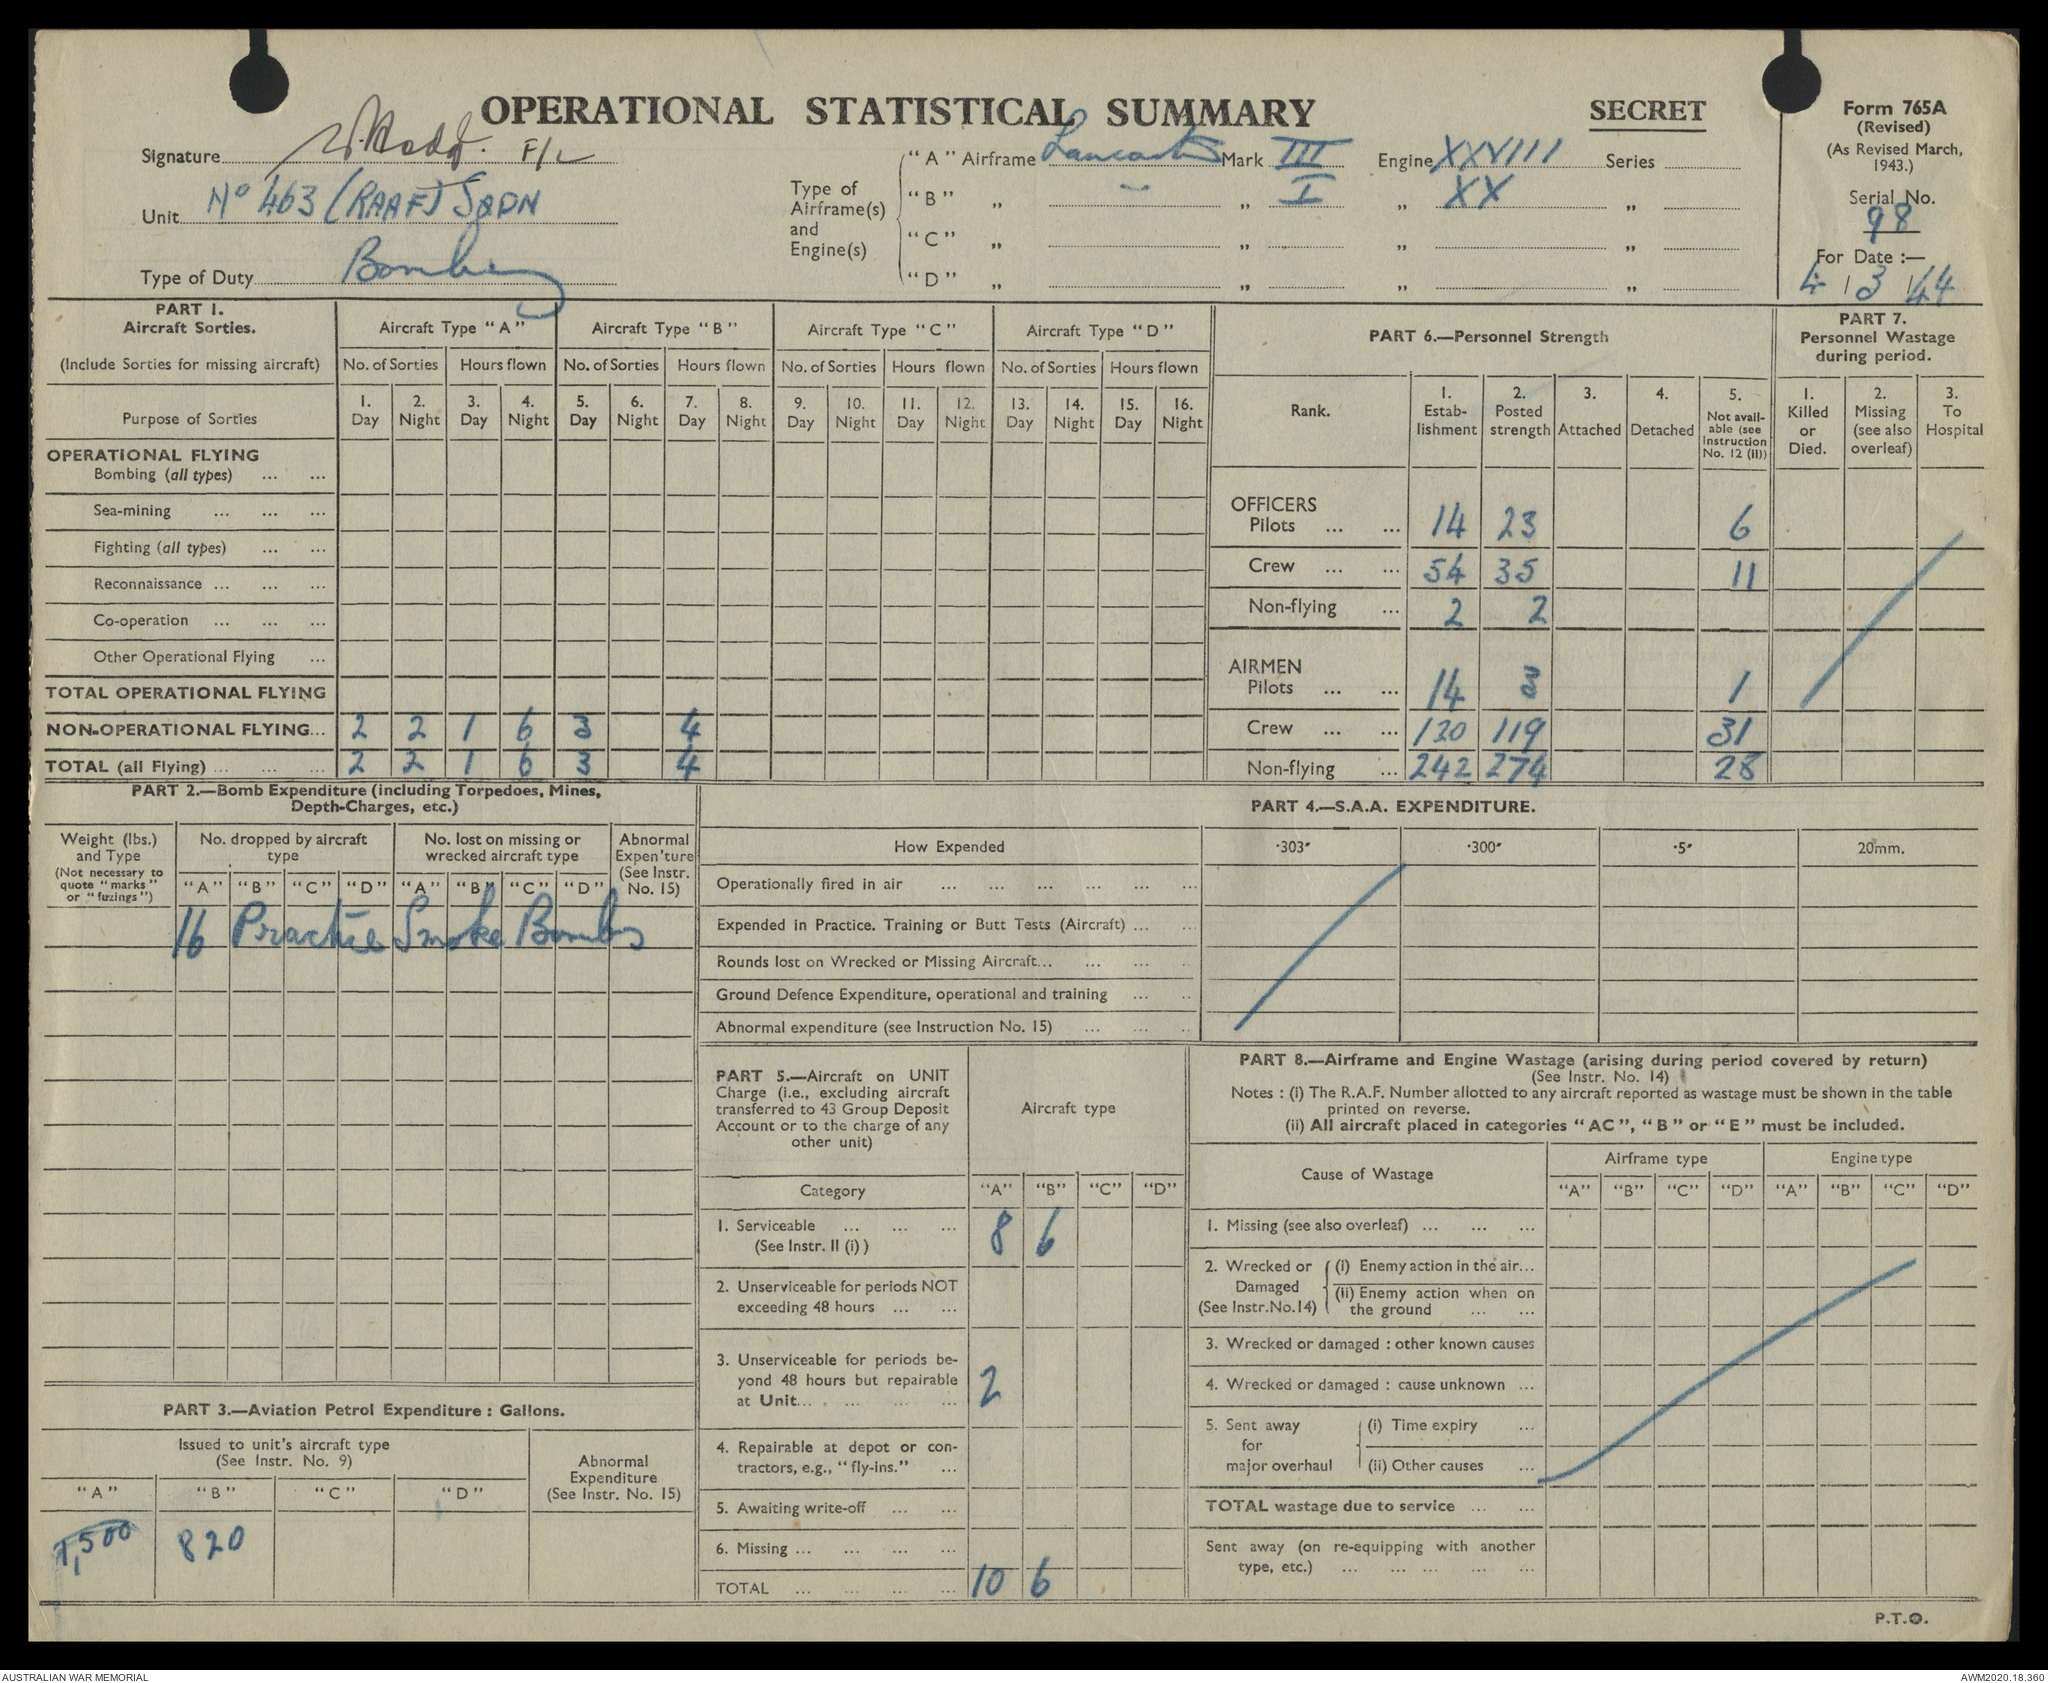 OPERATIONAL STATISTICAL SUMMARY
SECRET
Form 765A
(Revised)
(As Revised March, 1943.)
Serial No.
98
For Date :—
4 / 3 / 44
Signature F/L
Unit No 463 (RAAF) SQDN
Type of Duty Bombing
Type of Airframe(s) and Engine(s)
"A" Airframe Lancaster Mark III Engine XXVIII Series
"B" „ — „ I „ XX „
"C" „ „ „ „
"D" „ „ „ „
PART 1.
Aircraft Sorties.
(Include Sorties for missing aircraft)
Purpose of Sorties
Aircraft Type "A" Aircraft Type "B" Aircraft Type "C" Aircraft Type "D"
No. of Sorties Hours flown No. of Sorties Hours flown No. of Sorties Hours flown No. of Sorties Hours flown
1. Day 2. Night 3. Day 4. Night 5. Day 6. Night 7. Day 8. Night 9. Day 10. Night 11. Day 12. Night 13. Day 14. Night 15. Day 16. Night
OPERATIONAL FLYING
Bombing (all types) ... ...
Sea-mining ... ... ...
Fighting (all types) ... ...
Reconnaissance ... ... ...
Co-operation ... ... ...
Other Operational Flying ...
TOTAL OPERATIONAL FLYING
NON-OPERATIONAL FLYING... 2 2 1 6 3 4
TOTAL (all Flying) ... ... ... 2 2 1 6 3 4
PART 6.—Personnel Strength
Rank.
1. Estab-lishment
2. Posted strength
3. Attached
4. Detached
5. Not avail-able (see Instruction No. 12 (II))
OFFICERS
Pilots ... ... 14 23 6
Crew ... ... 54 35 11
Non-flying ... 2 2
AIRMEN
Pilots ... ... 14 3 1
Crew ... ... 130 119 31
Non-flying ... 242 274 28
PART 7.
Personnel Wastage
during period.
1. Killed or Died.
2. Missing (see also overleaf)
3. To Hospital
PART 2.—Bomb Expenditure (including Torpedoes, Mines,
Depth-Charges, etc.)
Weight (lbs.) and Type
(Not necessary to quote "marks" or "fuzings")
No. dropped by aircraft type
No. lost on missing or wrecked aircraft type
Abnormal Expen'ture (See Instr. No. 15)
"A" "B" "C" "D" "A" "B" "C" "D"
16 Practice Smoke Bombs
PART 3.—Aviation Petrol Expenditure : Gallons.
Issued to unit's aircraft type
(See Instr. No. 9)
Abnormal Expenditure (See Instr. No. 15)
"A" "B" "C" "D"
1,500 820
PART 4.—S.A.A. EXPENDITURE.
How Expended ·303" ·300" ·5" 20mm.
Operationally fired in air ... ... ... ... ... ...
Expended in Practice. Training or Butt Tests (Aircraft) ... ...
Rounds lost on Wrecked or Missing Aircraft... ... ... ..
Ground Defence Expenditure, operational and training ... ..
Abnormal expenditure (see Instruction No. 15) ... ... ..
PART 5.—Aircraft on UNIT
Charge (i.e., excluding aircraft
transferred to 43 Group Deposit
Account or to the charge of any
other unit)
Aircraft type
Category "A" "B" "C" "D"
1. Serviceable ... ... ... 8 6
(See Instr. II (i) )
2. Unserviceable for periods NOT
exceeding 48 hours ... ...
3. Unserviceable for periods be-
yond 48 hours but repairable
at Unit... . ... ... ... 2
4. Repairable at depot or con-
tractors, e.g., "fly-ins." ...
5. Awaiting write-off ... ...
6. Missing ... ... ... ...
TOTAL ... ... ... ... 10 6
PART 8.—Airframe and Engine Wastage (arising during period covered by return)
(See Instr. No. 14)
Notes : (i) The R.A.F. Number allotted to any aircraft reported as wastage must be shown in the table
printed on reverse.
(ii) All aircraft placed in categories "AC", "B" or "E" must be included.
Cause of Wastage
Airframe type Engine type
"A" "B" "C" "D" "A" "B" "C" "D"
1. Missing (see also overleaf) ... ... ...
2. Wrecked or Damaged (See Instr.No.14)
(i) Enemy action in the air...
(ii) Enemy action when on the ground ... ...
3. Wrecked or damaged : other known causes
4. Wrecked or damaged : cause unknown ...
5. Sent away for major overhaul
(i) Time expiry ...
(ii) Other causes ...
TOTAL wastage due to service ... ...
Sent away (on re-equipping with another
type, etc.) ... ... ... ... ...
P.T.O.
AUSTRALIAN WAR MEMORIAL
AWM2020.18.360